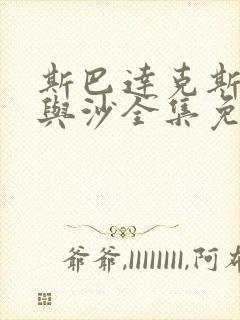 斯巴達克斯
與沙全集免
爺爺,llllllll,阿布